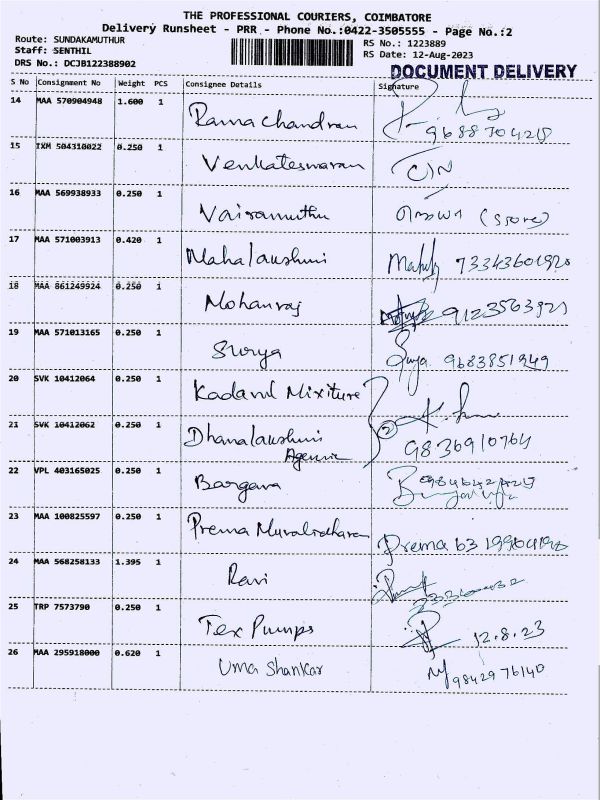 THE PROFESSIONAL COURIERS, COIMBATORE
Delivery Runsheet - PRR - Phone No.:0422-3505555 - Page No.:2
Route: SUNDAKAMUTHUR
Staff: SENTHIL
DRS No.: DCJB122388902
RS No.: 1223889
RS Date: 12-Aug-2023
DOCUMENT DELIVERY
S No Consignment No Weight PCS Consignee Details Signature
14 MAA 570904948 1.600 1 Ramachandran 9688704218
15 IXM 504310022 0.250 1 Venkateswaran
16 MAA 569938933 0.250 1 Vairamuthu (store)
17 MAA 571003913 0.420 1 Mahalakshmi 73343601920
18 MAA 861249924 0.250 1 Mohanraj 9123563921
19 MAA 571013165 0.250 1 Surya Surya 9683851949
20 SVK 10412064 0.250 1 Kadanl Mixiture
21 SVK 10412062 0.250 1 Dhanalakshmi Agencie 2 9836910764
22 VPL 403165025 0.250 1 Bargava
23 MAA 100825597 0.250 1 Prema Muralidharan Prema
24 MAA 568258133 1.395 1 Ravi
25 TRP 7573790 0.250 1 Tex Pumps 12.8.23
26 MAA 295918000 0.620 1 Uma Shankar 9842976140